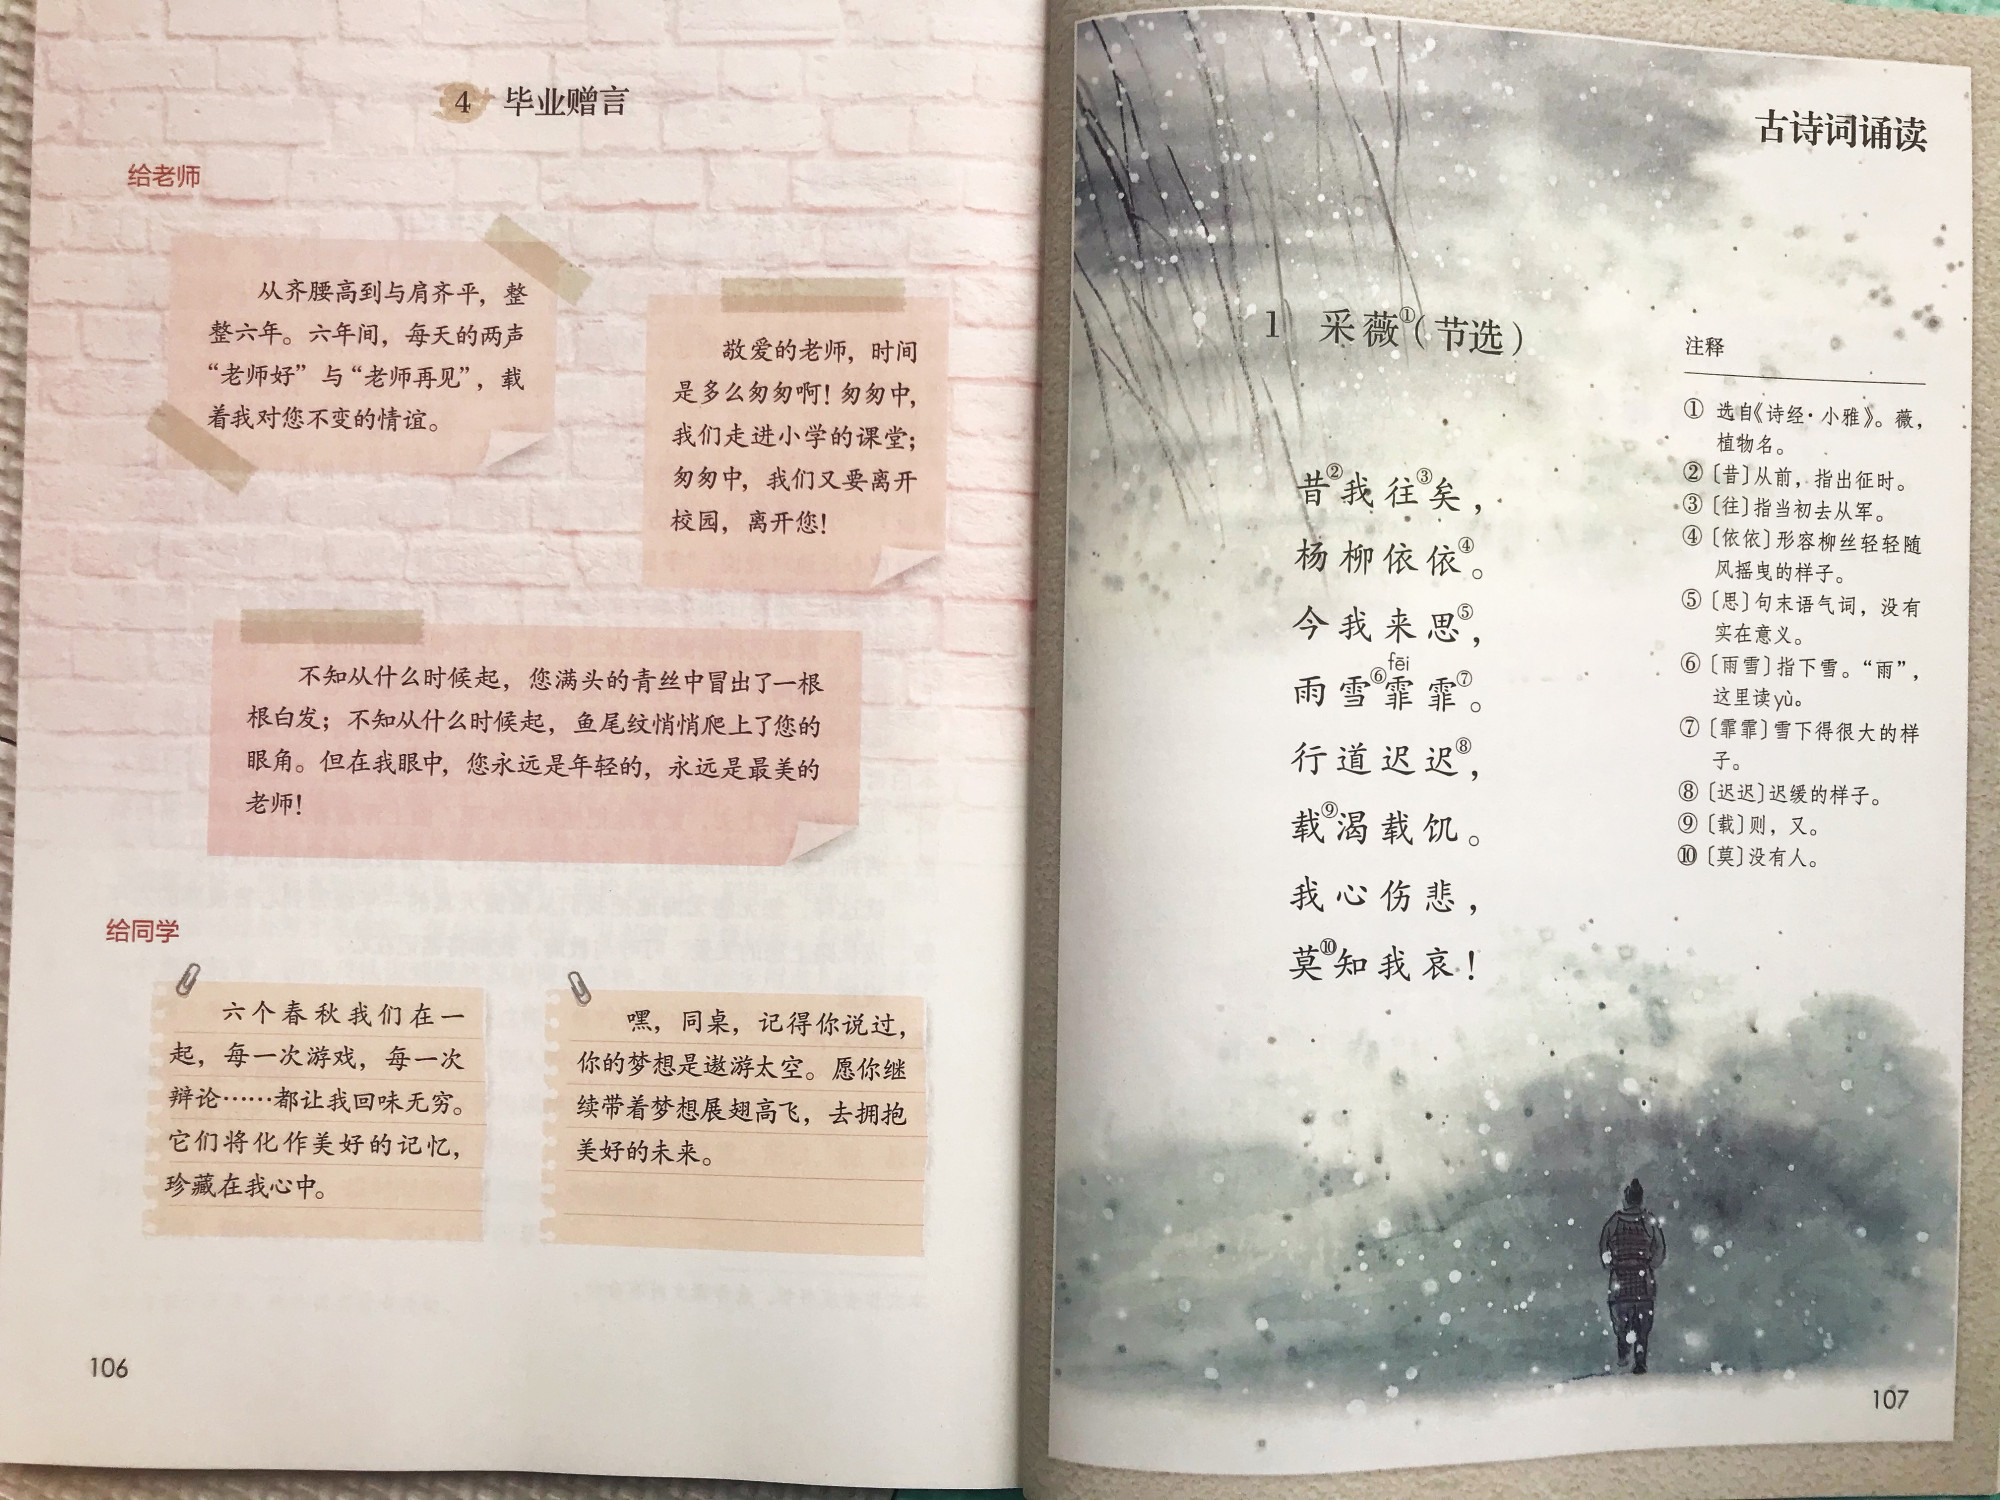 4 毕业赠言
给老师
从齐腰高到与肩齐平，整
整六年。六年间，每天的两声
“老师好”与“老师再见”，载
着我对您不变的情谊。
敬爱的老师，时间
是多么匆匆啊！匆匆中，
我们走进小学的课堂；
匆匆中，我们又要离开
校园，离开您！
不知从什么时候起，您满头的青丝中冒出了一根
根白发；不知从什么时候起，鱼尾纹悄悄爬上了您的
眼角。但在我眼中，您永远是年轻的，永远是最美的
老师！
给同学
六个春秋我们在一
起，每一次游戏，每一次
辩论……都让我回味无穷。
它们将化作美好的记忆，
珍藏在我心中。
嘿，同桌，记得你说过，
你的梦想是遨游太空。愿你继
续带着梦想展翅高飞，去拥抱
美好的未来。
106
古诗词诵读
1 采薇①（节选）
昔②我往③矣，
杨柳依依④。
今我来思⑤，
fēi
雨雪⑥霏霏⑦。
行道迟迟⑧，
载⑨渴载饥。
我心伤悲，
莫⑩知我哀！
注释
① 选自《诗经·小雅》。薇，
植物名。
②〔昔〕从前，指出征时。
③〔往〕指当初去从军。
④〔依依〕形容柳丝轻轻随
风摇曳的样子。
⑤〔思〕句末语气词，没有
实在意义。
⑥〔雨雪〕指下雪。“雨”，
这里读yù。
⑦〔霏霏〕雪下得很大的样
子。
⑧〔迟迟〕迟缓的样子。
⑨〔载〕则，又。
⑩〔莫〕没有人。
107